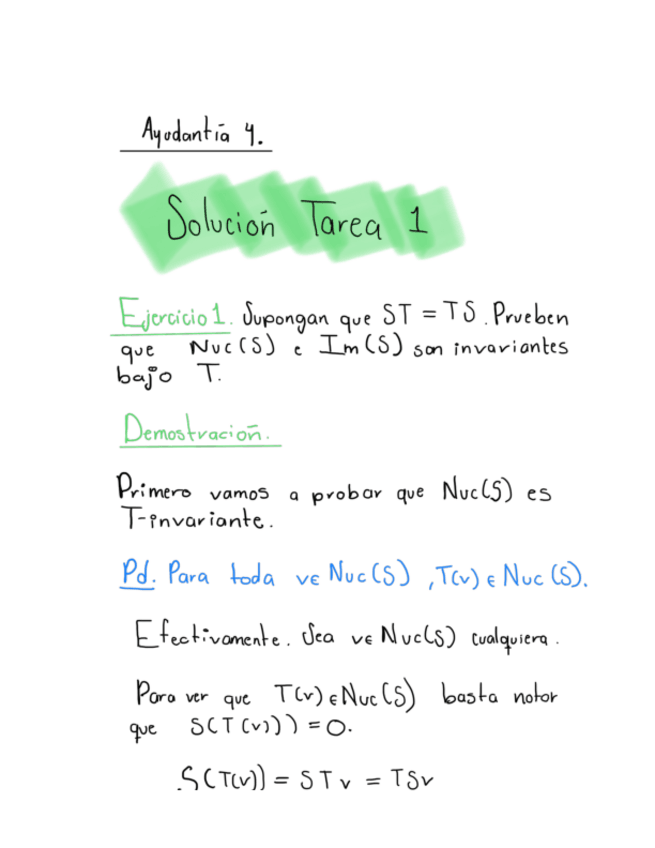 Ayudantía 4.
Solución Tarea 1
Ejercicio 1. Supongan que ST = TS. Prueben
que Nuc(S) e Im(S) son invariantes
bajo T.
Demostración.
Primero vamos a probar que Nuc(S) es
T-invariante.
Pd. Para toda v∈Nuc(S), T(v)∈Nuc(S).
Efectivamente. Sea v∈Nuc(S) cualquiera.
Para ver que T(v)∈Nuc(S) basta notar
que S(T(v))) = 0.
S(T(v)) = STv = TSv